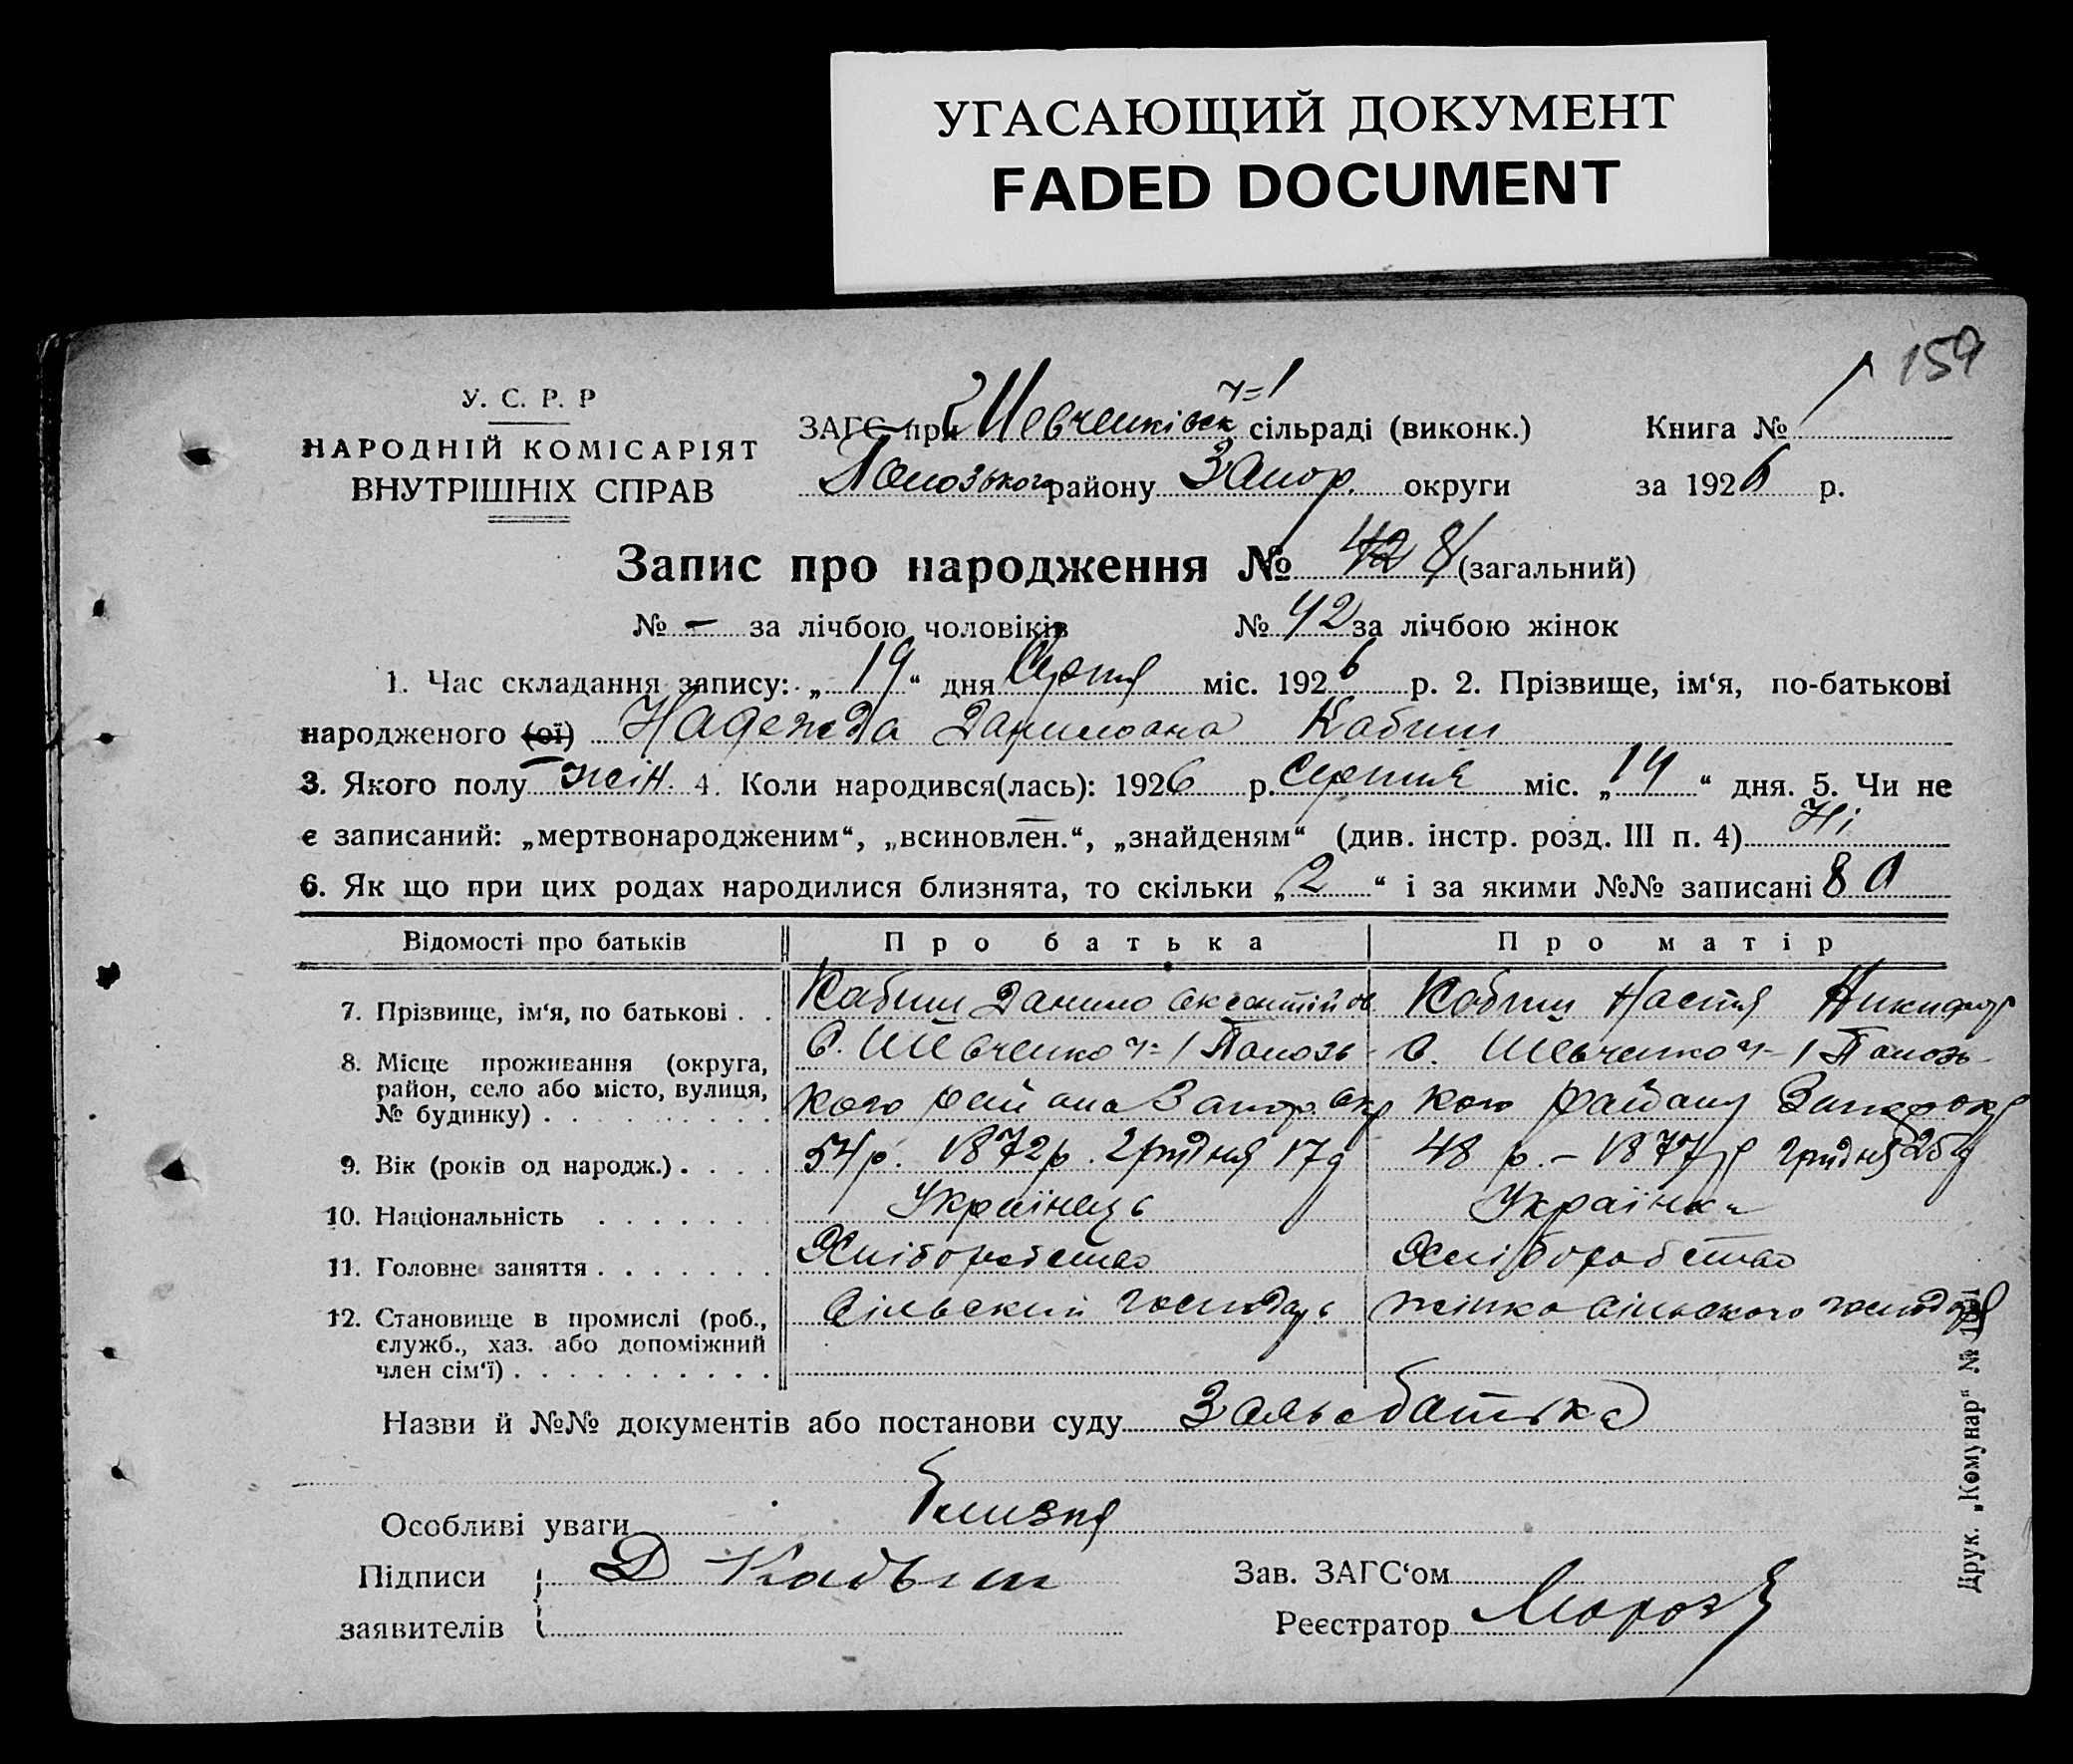 УГАСАЮЩИЙ ДОКУМЕНТ
FADED DOCUMENT
159
У. С. Р. Р
НАРОДНІЙ КОМІСАРІЯТ
ВНУТРІШНІХ СПРАВ
ч=1
ЗАГС при Шевченківськ сільраді (виконк.)
Книга № 1
району Запор. округи
за 1926 р.
Запис про народження № 42 81 (загальний)
№ - за лічбою чоловіків № 42 за лічбою жінок
1. Час складання запису: „ 19 “ дня Серпня міс. 1926 р. 2. Прізвище, ім‘я, по-батькові
народженого (ої) Надежда Даниловна Кабиш
3. Якого полу жін. 4. Коли народився(лась): 1926 р. Серпня міс. „ 14 “ дня. 5. Чи не
є записаний: „мертвонародженим“, „всиновлен.“, „знайденям“ (див. інстр. розд. III п. 4) Ні
6. Як що при цих родах народилися близнята, то скільки „ 2 “ і за якими №№ записані 80
Відомості про батьків Про батька Про матір
7. Прізвище, ім‘я, по батькові . . Кабиш Данило Аксентійов Кабиш Настя Никифор
8. Місце проживання (округа, район, село або місто, вулиця, № будинку) . . . . . . . . . с. Шевченко ч=1 Полозь- с. Шевченко ч-1 Полозь-
кого района Запор. окр кого району Запор окр
9. Вік (років од народж.) . . . . 54 р. 1872 р. Грудня 17 д 48 р. – 1877 р Грудня 25 д
10. Національність . . . . . . . Українець Українка
11. Головне заняття . . . . . . . Хліборобство Хліборобство
12. Становище в промислі (роб., служб., хаз. або допоміжний член сім‘ї) . . . . . . . . . . Сільский господарь жінка сільского господаря
Назви й №№ документів або постанови суду Заява батька
Особливі уваги Близня
Підписи Д Кабыш
Зав. ЗАГС‘ом
заявителів
Реєстратор Мороз
Друк. „Комунар“ №